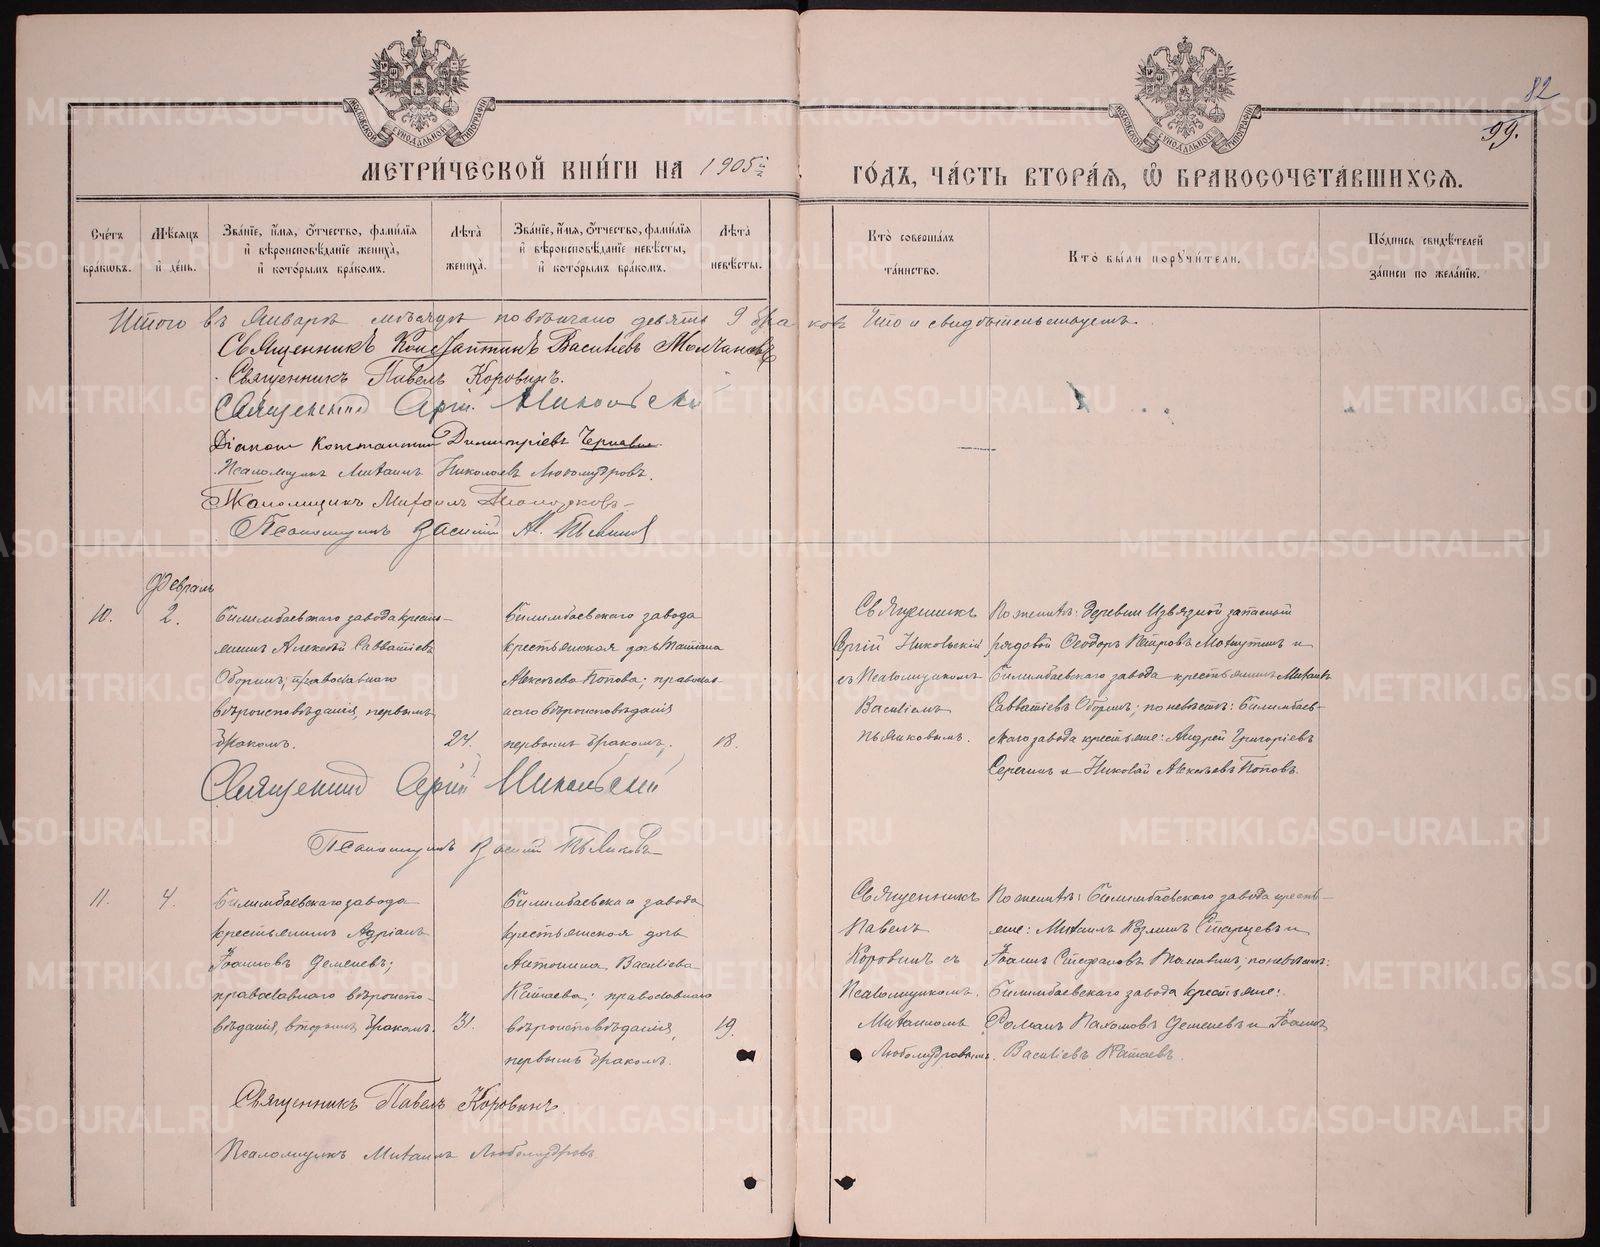 82
99.
МОСКОВСКОЙ СѴНОДАЛЬНОЙ ТИПОГРАФІИ
МОСКОВСКОЙ СѴНОДАЛЬНОЙ ТИПОГРАФІИ
МЕТРИ́ЧЕСКОЙ КНИ́ГИ НА 1905й
ГО́ДЪ, ЧА́СТЬ ВТОРА́Я, Ѽ БРАКОСОЧЕТА́ВШИХСЯ.
Сче́тъ бра́ковъ.
Мѣ́сяцъ и҆ де́нь.
Зва́нїе, и҆́мя, ѻ҆́тчество, фами́лїя и҆ вѣроисповѣ́данїе жениха̀, и҆ кото́рымъ бра́комъ.
Лѣ́та жениха̀.
Зва́нїе, и҆́мя, ѻ҆́тчество, фами́лїя и҆ вѣроисповѣ́данїе невѣ́сты, и҆ кото́рымъ бра́комъ.
Лѣ́та невѣ́сты.
Кто̀ соверша́лъ та́инство.
Кто̀ бы́ли порꙋчи́тели.
По́дпись свидѣ́телей за́писи по жела́нїю.
Итого въ Январѣ мѣсяцѣ повѣнчано девять 9 браковъ Что и свидѣтельствуемъ.
Священникъ Константинъ Васильевъ Молчановъ
Священникъ Павелъ Коровинъ.
Священникъ Сергій Никольскій
Діаконъ Константинъ Димитріевъ
Псаломщикъ Михаилъ Николаевъ Любомудровъ.
Псаломщикъ Михаилъ
Псаломщикъ Василій Пьянковъ
Февраль
10.
2.
Билимбаевскаго завода кресть-
янинъ Алексѣй Савватіевъ
Оборинъ; православнаго
вѣроисповѣданія, первымъ
бракомъ.
24.
Билимбаевскаго завода
крестьянская дочь Татіана
Алексѣева Попова; православ-
наго вѣроисповѣданія
первымъ бракомъ.
18.
Священникъ
Сергій Никольскій
съ Псаломщикомъ
Василіемъ
Пьянковымъ.
По женихѣ: деревни Извязной запасный
рядовой Ѳеодоръ Петровъ Мохнутинъ и
Билимбаевскаго завода крестьянинъ Михаилъ
Савватіевъ Оборинъ; по невѣстѣ: Билимбаев-
скаго завода крестьяне: Андрей Григоріевъ
и Николай Алексѣевъ Поповъ.
Священникъ Сергій Никольскій
Псаломщикъ Василій Пьянковъ
11.
4.
Билимбаевскаго завода
крестьянинъ Адріанъ
Іоанновъ Деменевъ;
православнаго вѣроиспо-
вѣданія, вторымъ бракомъ.
31.
Билимбаевскаго завода
крестьянская дочь
Антонина Васильева
Катаева; православнаго
вѣроисповѣданія,
первымъ бракомъ.
19.
Священникъ
Павелъ
Коровинъ съ
Псаломщикомъ
Михаиломъ
Любомудровымъ.
По женихѣ: Билимбаевскаго завода кресть-
яне: Михаилъ Козминъ Старцевъ и
Іоаннъ Стефановъ; по невѣстѣ:
Билимбаевскаго завода крестьяне:
Романъ Пахомовъ Деменевъ и Іоаннъ
Васильевъ Катаевъ.
Священникъ Павелъ Коровинъ.
Псаломщикъ Михаилъ Любомудровъ
METRIKI.GASO-URAL.RU